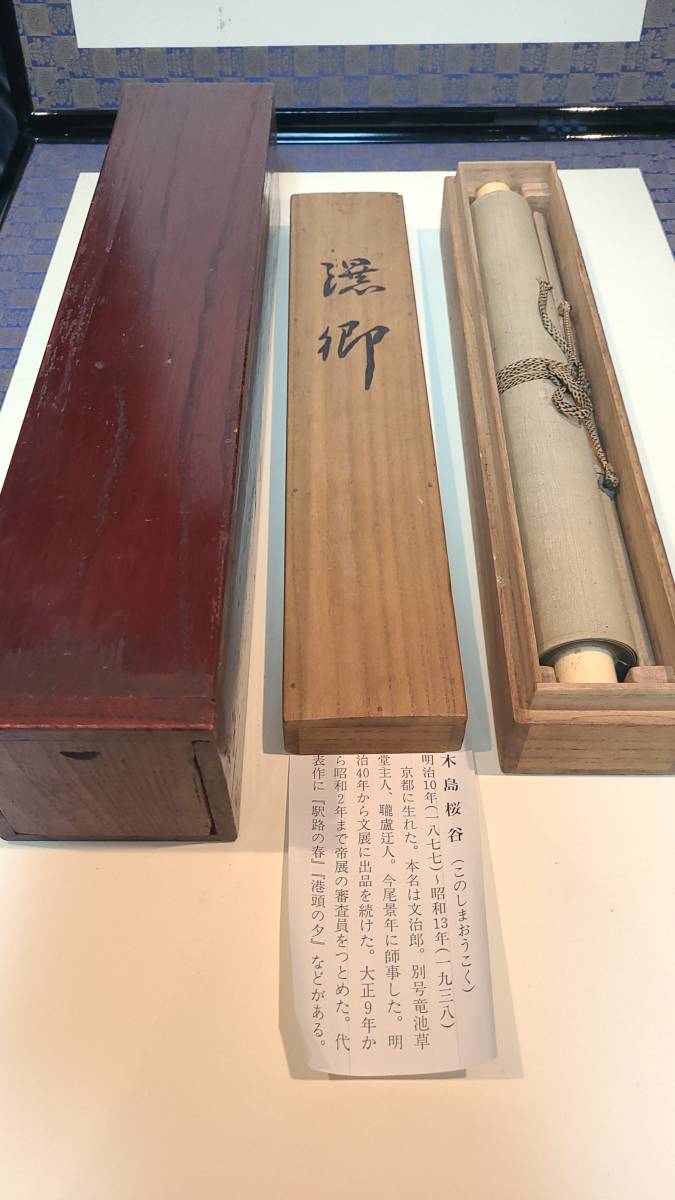 木島桜谷（このしまおうこく）
明治10年（一八七七）～昭和13年（一九三八）
京都に生れた。本名は文治郎。別号竜池草
堂主人、聾廬迂人。今尾景年に師事した。明
治40年から文展に出品を続けた。大正９年か
ら昭和２年まで帝展の審査員をつとめた。代
表作に『駅路の春』『港頭の夕』などがある。